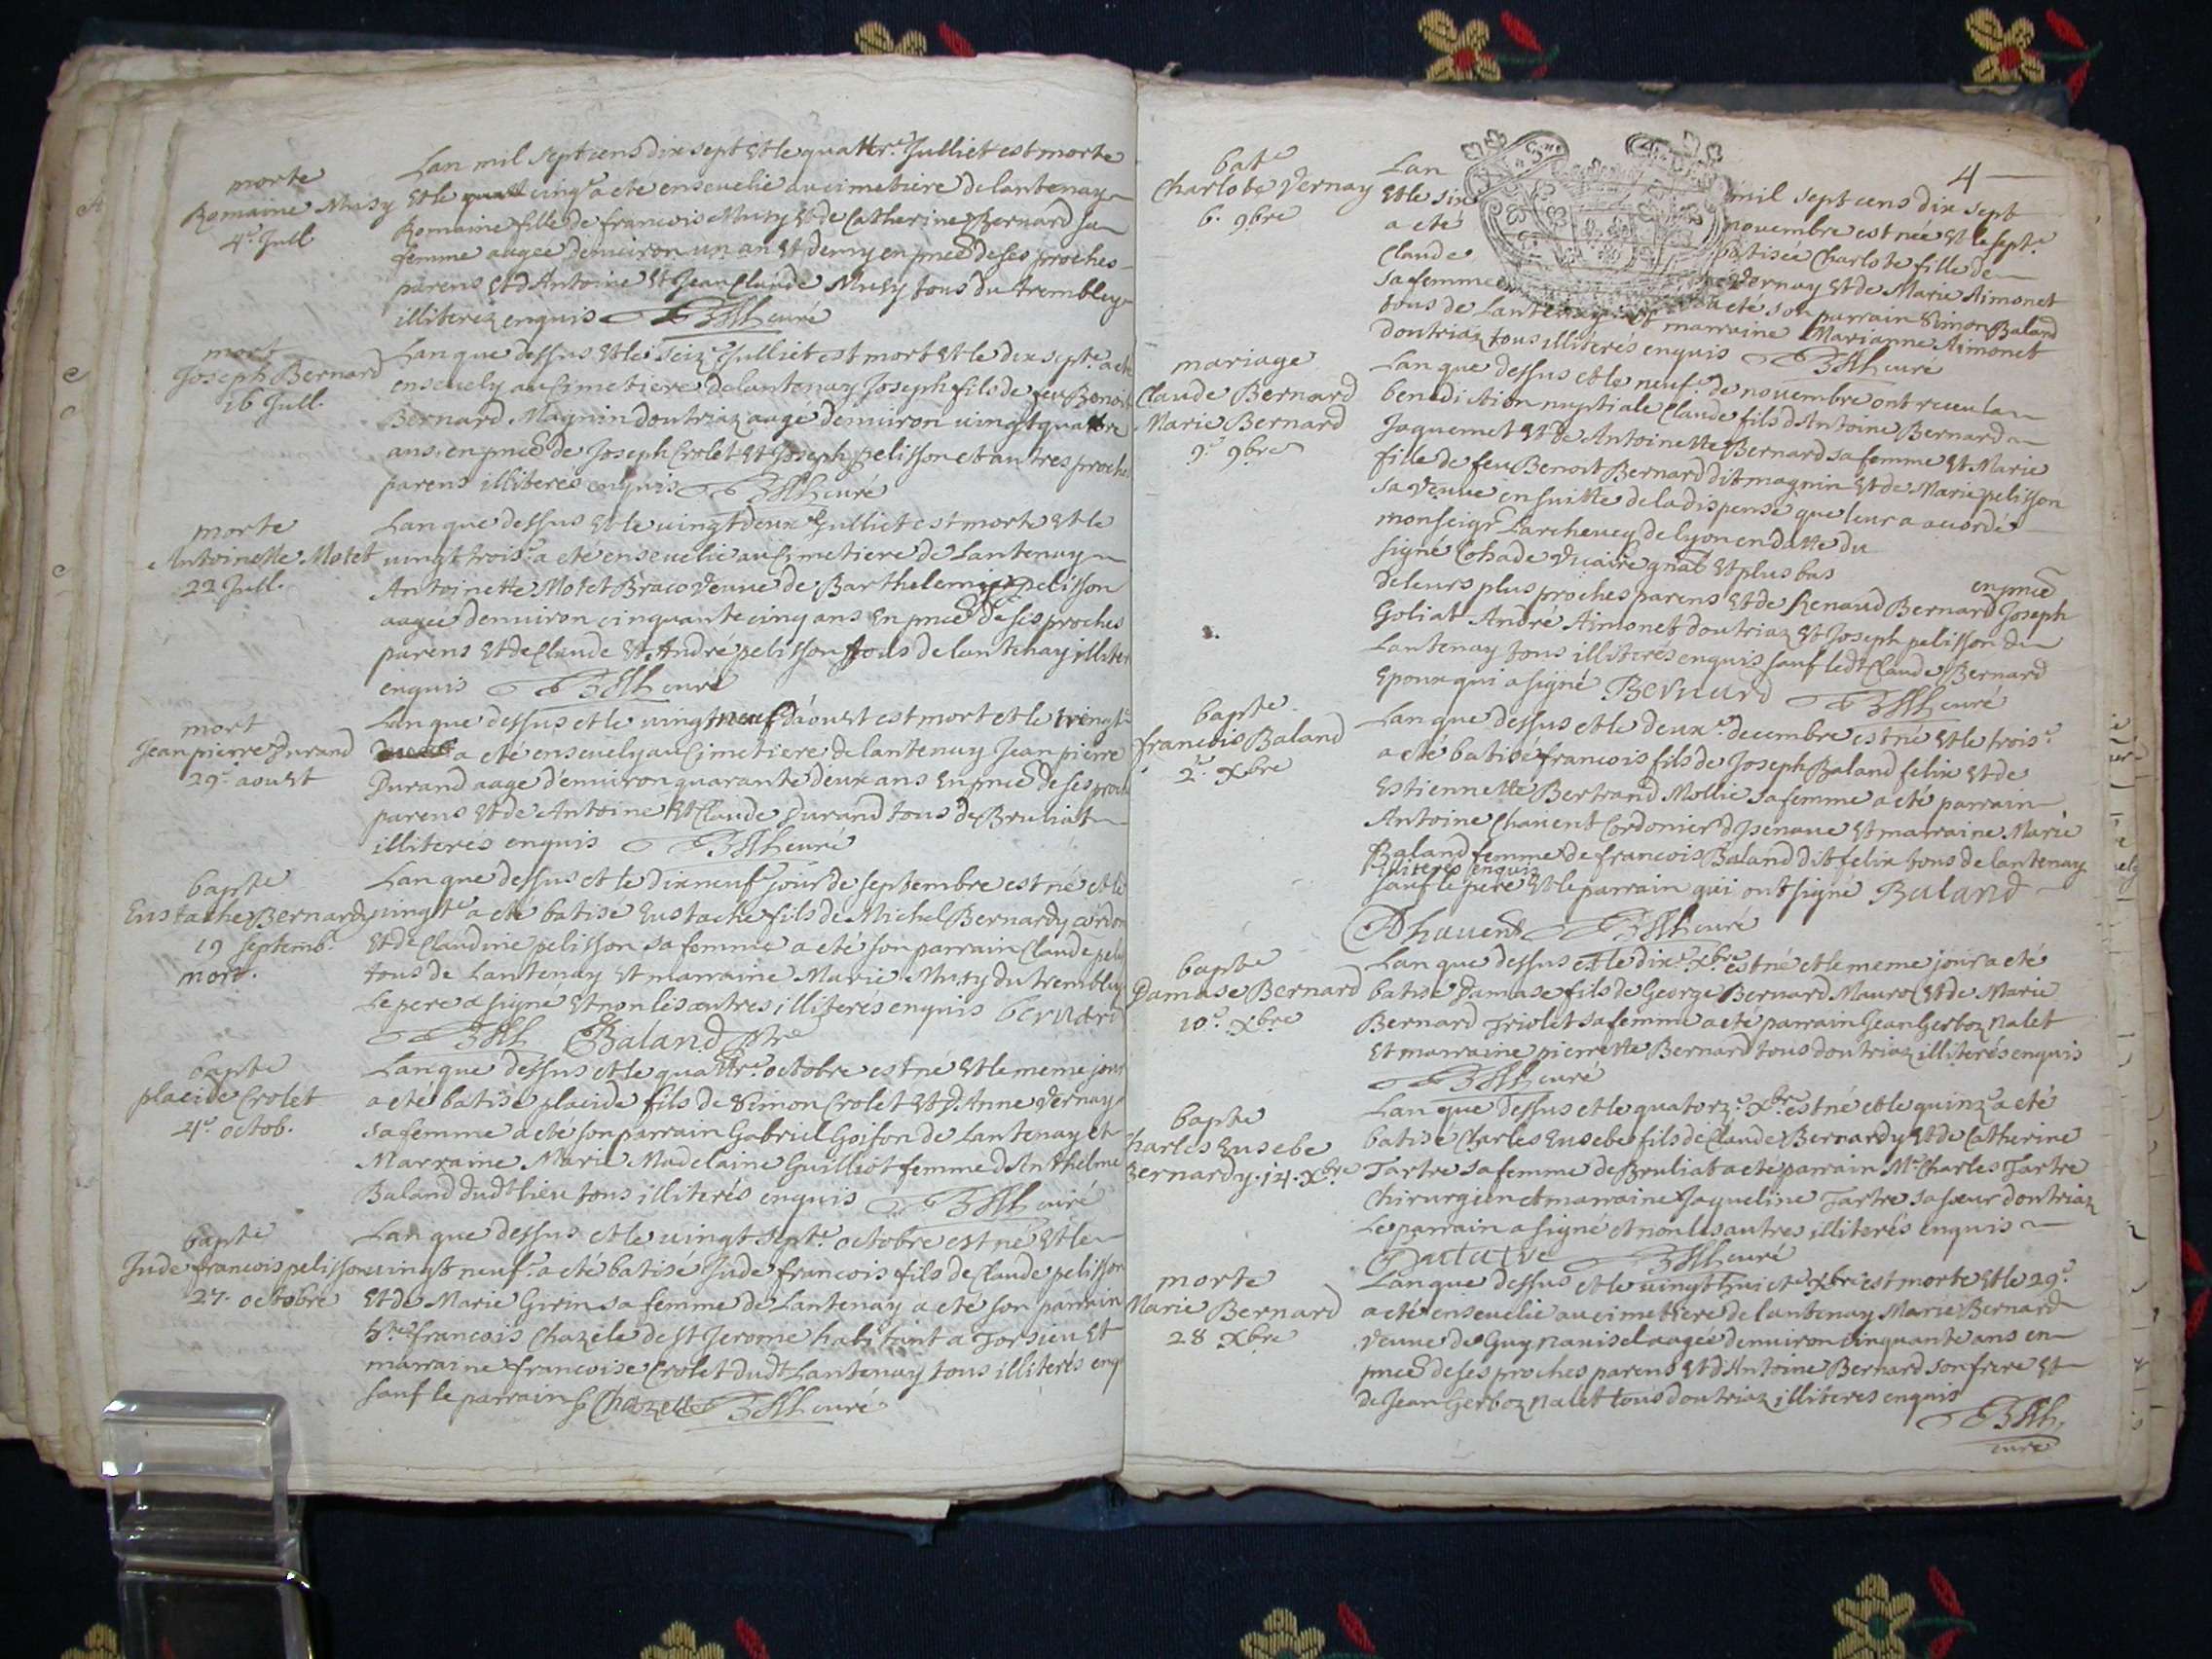 morte
Romaine Musy
4.e Jull
Lan mil sept cens dix sept et le quattr.e Julliet est morte
et le cinq.e a eté enseuelie au cimetiere de lantenay
Romaine fille de francois Musy et de Catherine Bernard sa
femme augee denuiron un an et demy en pnce de ses proches
parens et d'Antoine et Jean Claude Musy tous du trembley
illiterez enquis curé
mort
Joseph Bernard
16 Jull.
Lan que dessus et le seiz.e Julliet est mort et le dix sept.e a eté
enseuely au Cimetiere de lantenay Joseph fils de feu Benoit
Bernard Magnin doutriaz aagé denuiron uingt quattre
ans en pnce de Joseph Crolet et Joseph pelisson et autres proche
parens illiterés enquis curé
morte
Antoinette Motet
22 Jull.
Lan que dessus et le uingt deux Julliet est morte et le
uingt trois.e a eté enseuelie au Cimetiere de Lantenay
Antoinette Motet Braco veuue de Barthelemy pelisson
aagée denuiron cinquante cinq ans en pnce de ses proches
parens et de Claude et André pelisson tous de lantenay illiter
enquis curé
mort
Jean pierre Durand
29.e aoust
Lan que dessus et le uingt neuf d'aoust est mort et le trengt.e
a eté enseuely au Cimetiere de lantenay Jean pierre
Durand aagé denuiron quarante deux ans en pnce de ses proch
parens et de Antoine et Claude Durand tous de Bruliat
illiterés enquis curé
bapte
Eustache Bernardy
19 septemb.
mort.
Lan que dessus et le dix neuf jour de septembre est né et le
uingt.e a eté batisé Eustache fils de Michel Bernardy cordon
et de Claudine pelisson sa femme a eté son parrain Claude pelis
tous de Lantenay et marraine Marie Musy du trembley
Le pere a signé et non les autres illiterés enquis bernard
Baland ptre
bapte
placide Crolet
4.e octob.
Lan que dessus et le quattr.e octobre est né et le meme jour
a eté batisé placide fils de Simon Crolet et d'Anne Vernay
sa femme a eté son parrain Gabriel Goifon de Lantenay et
Marraine Marie Madelaine Guilliot femme d'Anthelme
Baland dudt lieu tous illiterés enquis curé
bapte
Jude francois pelisson
27. octobre
Lan que dessus et le uingt sept.e octobre est né et le
uingt neuf.e a eté batisé Jude francois fils de Claude pelisson
et de Marie Girin sa femme de Lantenay a eté son parrain
francois Chazele de St Jerome habitant a Torsieu et
marraine francoise Crolet dudt Lantenay tous illiterés enq
sauf le parrain f Chazelle curé
4
bate
Charlote Vernay
6. 9bre
Lan mil sept cens dix sept
et le six nouembre est née et le sept.e
a eté batisée Charlote fille de
Claude Vernay et de Marie Aimonet
sa femme a eté son parrain Simon Baland
tous de Lantenay et marraine Marianne Aimonet
doutriaz tous illiterés enquis curé
mariage
Claude Bernard
Marie Bernard
9.e 9bre
Lan que dessus et le neuf.e de nouembre ont receu la
benediction nuptiale Claude fils d'Antoine Bernard
Jaquemet et de Antoinette Bernard sa femme et Marie
fille de feu Benoit Bernard dit magnin et de Marie pelisson
sa veuue en suitte de la dispense que leur a acordé
monseigr Larcheueq de lyon en datte du
signé Cohade vicaire gnal et plus bas
en pnce
de leurs plus proches parens et de Renaud Bernard Joseph
Goliat André Aimonet doutriaz et Joseph pelisson de
Lantenay tous illiterés enquis sauf ledt Claude Bernard
Epoux qui a signé Bernard curé
bapte.
francois Baland
2.e Xbre
Lan que dessus et le deux.e decembre est né et le trois.e
a eté batisé francois fils de Joseph Baland felix et de
Estiennette Bertrand Mollie sa femme a eté parrain
Antoine Chauent Cordonier d'Isenaue et marraine Marie
Baland femme de francois Baland dit felix tous de lantenay
illiterés enquis
sauf le pere et le parrain qui ont signé Baland
Chauent curé
bapte
Damase Bernard
10.e Xbre
Lan que dessus et le dix.e Xbre est né et le meme jour a eté
batisé Damase fils de George Bernard Mauro et de Marie
Bernard Triolet sa femme a eté parrain Jean Gerboz nalet
et marraine pierrette Bernard tous doutriaz illiterés enquis
curé
bapte
Charles Eusebe
Bernardy. 14. Xbre
Lan que dessus et le quatorz.e Xbre est né et le quinz.e a eté
batisé Charles Eusebe fils de Claude Bernardy et de Catherine
Tartre sa femme de Bruliat a eté parrain M.e Charles Tartre
Chirurgien et marraine Jaqueline Tartre sa soeur doutriaz
Le parrain a signé et non les autres illiterés enquis
curé
morte
Marie Bernard
28 Xbre
Lan que dessus et le uingt huict Xbre est morte et le 29.e
a eté enseuelie au cimetiere de lantenay Marie Bernard
veuue de Guy nauisel aagée denuiron cinquante ans en
pnce de ses proches parens et d'Antoine Bernard son frere et
de Jean Gerboz nalet tous doutriaz illiteres enquis
curé